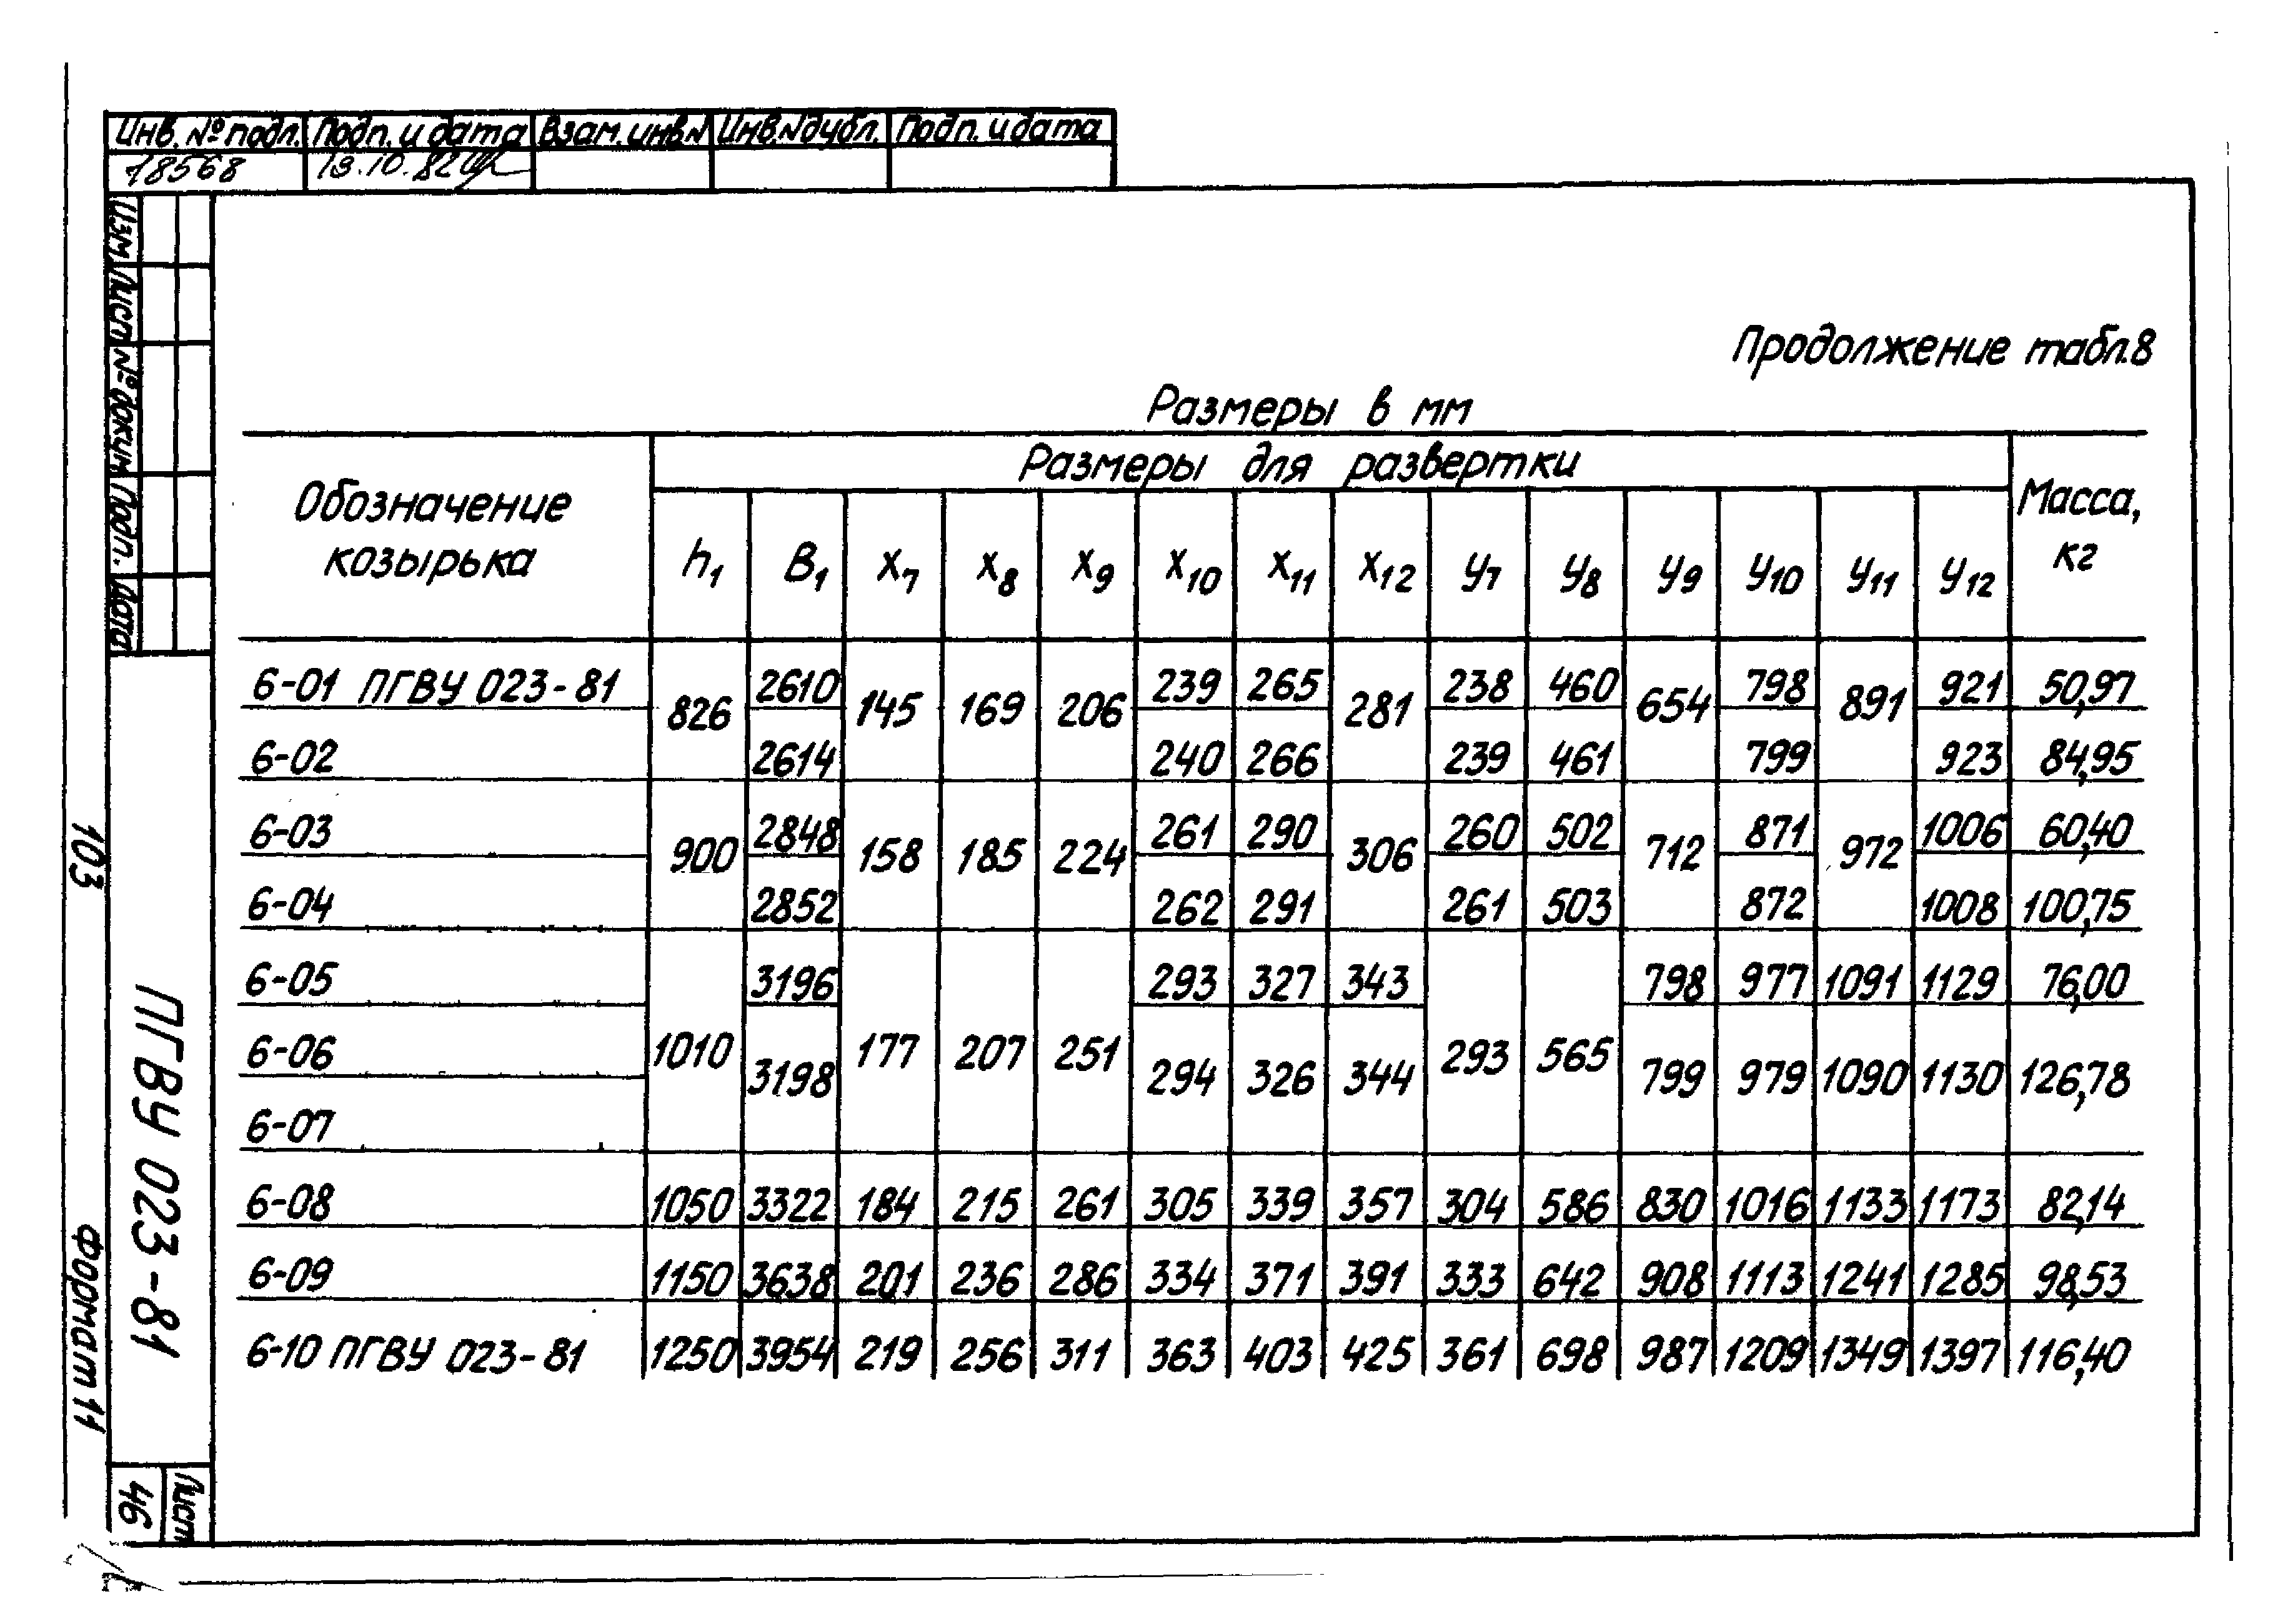 Инв. № подл. Подп. и дата Взам. инв. N Инв. N дубл. Подп. и дата
18568 13.10.82
Изм. Лист № докум. Подп. Дата
Продолжение табл.8
Размеры в мм
Обозначение козырька Размеры для развертки Масса, кг
h1 B1 x7 x8 x9 x10 x11 x12 y7 y8 y9 y10 y11 y12
6-01 ПГВУ 023-81 826 2610 145 169 206 239 265 281 238 460 654 798 891 921 50,97
6-02 2614 240 266 239 461 799 923 84,95
6-03 900 2848 158 185 224 261 290 306 260 502 712 871 972 1006 60,40
6-04 2852 262 291 261 503 872 1008 100,75
6-05 3196 293 327 343 798 977 1091 1129 76,00
6-06 1010 3198 177 207 251 294 326 344 293 565 799 979 1090 1130 126,78
6-07
6-08 1050 3322 184 215 261 305 339 357 304 586 830 1016 1133 1173 82,14
6-09 1150 3638 201 236 286 334 371 391 333 642 908 1113 1241 1285 98,53
6-10 ПГВУ 023-81 1250 3954 219 256 311 363 403 425 361 698 987 1209 1349 1397 116,40
ПГВУ 023-81
Лист
46
103
Формат 11